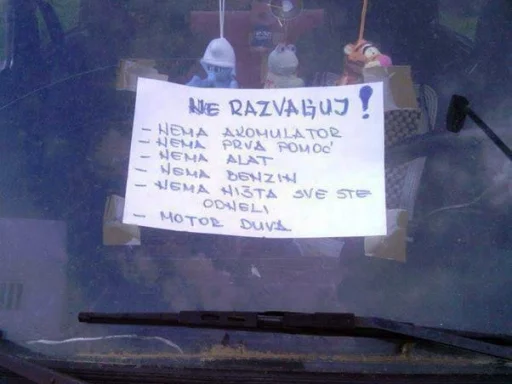 NE RAZVALJUJ!
- NEMA AKOMULATOR
- NEMA PRVA POMOĆ
- NEMA ALAT
- NEMA BENZIN
- NEMA NIŠTA SVE STE
ODNELI
- MOTOR DUVA